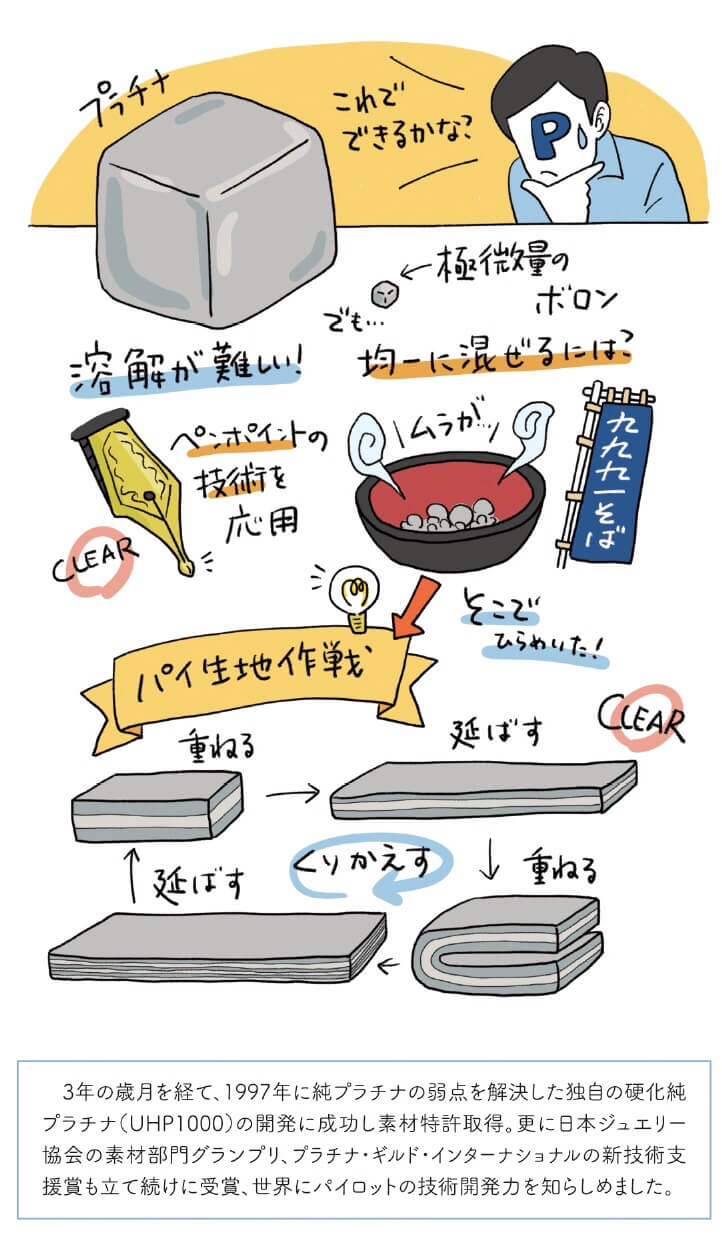 プラチナ
これで
できるかな?
P
←極微量の
ボロン
でも…
溶解が難しい!
均一に混ぜるには?
ペンポイントの
技術を
応用
CLEAR
ムラが…
九九九一そば
そこで
ひらめいた!
パイ生地作戦
CLEAR
重ねる
延ばす
くりかえす
重ねる
延ばす
3年の歳月を経て、1997年に純プラチナの弱点を解決した独自の硬化純
プラチナ(UHP1000)の開発に成功し素材特許取得。更に日本ジュエリー
協会の素材部門グランプリ、プラチナ・ギルド・インターナショナルの新技術支
援賞も立て続けに受賞、世界にパイロットの技術開発力を知らしめました。